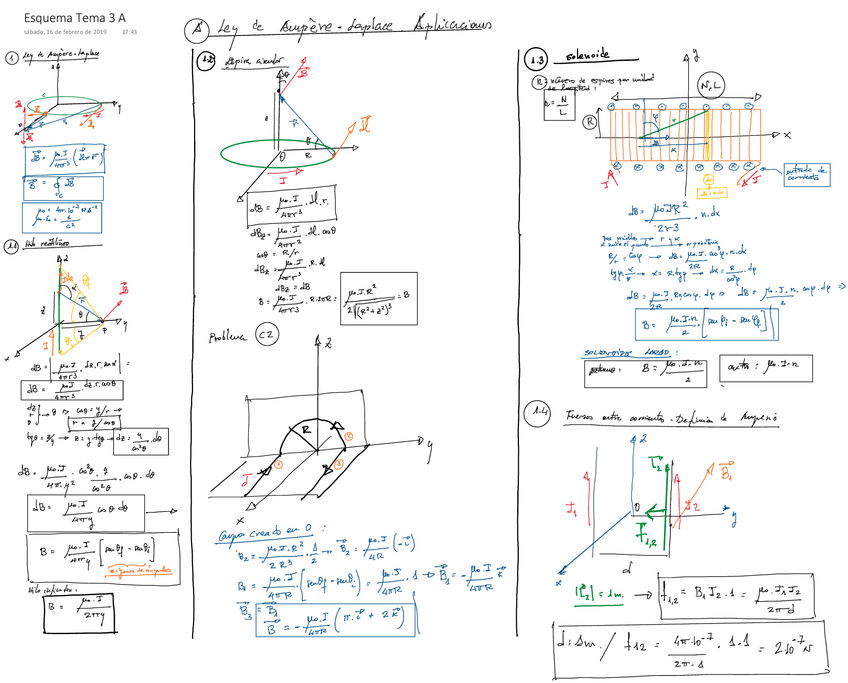 Esquema Tema 3 A
sábado, 16 de febrero de 2019 17:43
A Ley de Ampère-Laplace. Aplicaciones
1 Ley de Ampère-Laplace
dB = μ₀.I/4πr³ (dl × r)
B = ∮c dB
μ₀ = 4π.10⁻⁷ N A⁻²
1.1 Hilo rectilíneo
dB = μ₀.I/4πr³ . dz.r.senα =
dB = μ₀.I/4πr³ . dz.r.cosθ
cosθ = y/r →
r = y/cosθ
tgθ = z/y → z = y.tgθ → dz = y/cos²θ . dθ
dB = μ₀.I/4π.y² . cos²θ . y/cos²θ . cosθ . dθ
dB = μ₀.I/4πy cosθ dθ
B = μ₀.I/4πy [senθf - senθi]
Hilo infinito:
B = μ₀.I/2πy
1.2 Espira circular
dB = μ₀.I/4πr³ . dl.r.
dBz = μ₀.I/4πr² . dl.cosθ
cosθ = R/r
dBz = μ₀.I/4πr³ . R.dl
B = μ₀.I/4πr³ . R.2πR =
μ₀.I.R²/2√(R²+z²)³ = B
Problema C2
z
R
1
2
3
I
x
y
Campo creado en O:
B₂ = μ₀.I.R²/2R³ . 1/2 → B₂ = μ₀.I/4R (-i)
B₁ = μ₀.I/4πR [senθf - senθi] = μ₀.I/4πR . 1 → B₁ = - μ₀.I/4πR k
B₃ = B₁
B = - μ₀.I/4πR (π.i + 2k)
1.3 Solenoide
n: número de espiras por unidad
de longitud:
n = N/L
N, L
y
R
x
I
I
entrada de
corriente
dB = μ₀IR²/2r³ . n.dx
R/r = cosφ → dB = μ₀.I/2R cos³φ.n.dx
tgφ = x/R → x = R.tgφ → dx = R/cos²φ . dφ
dB = μ₀.I/2R . R n cosφ.dφ ⇒ dB = μ₀.I.n/2 . cosφ.dφ ⇒
B = μ₀.I.n/2 . [senφf - senφi]
SOLENOIDE LARGO:
extremo: B = μ₀.I.n/2
centro: μ₀.I.n
1.4 Fuerzas entre corrientes - Definición de Amperio
z
I₁
I₂
B₁
O
y
f₁,₂
x
d
= 1m. → f₁,₂ = B₁ I₂ . 1 = μ₀.I₁I₂/2πd
d: 1m. / f₁₂ = 4π.10⁻⁷/2π.1 . 1.1 = 2.10⁻⁷ N